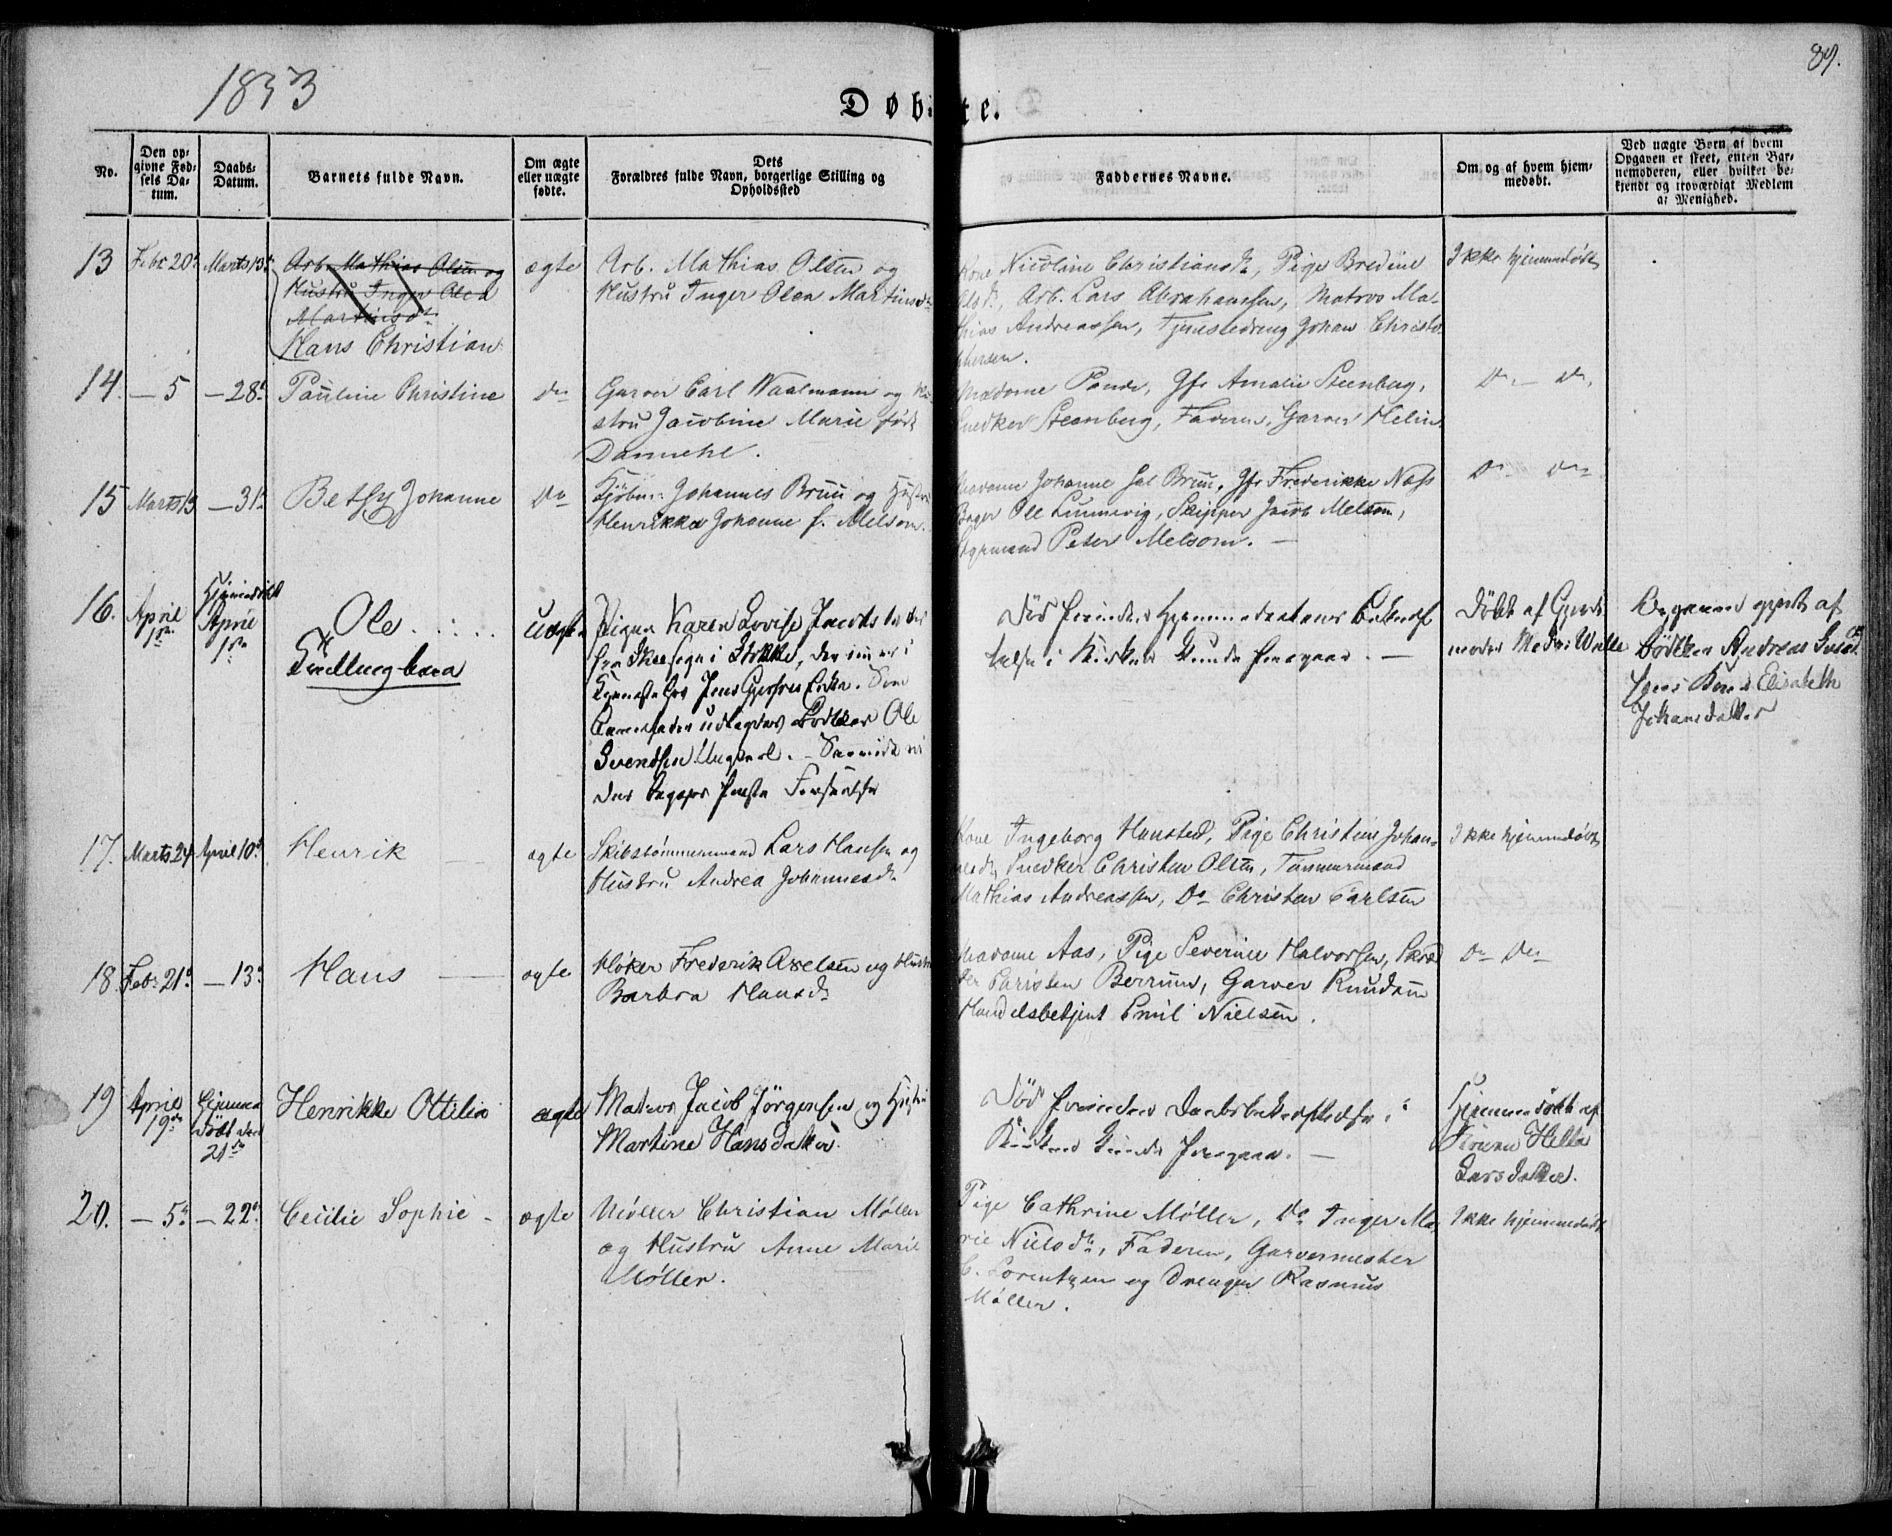 1853
89.
Døbte.
No.
Den opgivne Fødsels Datum.
Daabs-Datum.
Barnets fulde Navn.
Om ægte eller uægte fødte.
Dets Forældres fulde Navn, borgerlige Stilling og Opholdssted
Faddernes Navne.
Om og af hvem hjemmedøbt.
Ved uægte Børn af hvem Opgaven er skeet, enten Barnemoderen, eller hvilket bekjendt og troværdigt Medlem af Menighed.
13 Febr 20 Marts 13
Arb. Mathias Olsen og
Hustru Inger Olea
Martinsdr
Hans Christian
ægte
Arb. Mathias Olsen og
Hustru Inger Olea Martinsdr
Kone Nicoline Christiansdr, Pige Bredine
Olsdr, Arb. Lars Abrahamsen, Matros Ma-
thias Andreassen, Tjenestedreng Johan Christo
phersen.
Ikke hjemmedøbt
14. — 5 — 28 Pauline Christine do
Garver Carl Waalmann og Hu-
stru Jacobine Marie født
Dannehl.
Madame Pande, Jfr Amalie Steenberg,
Snedker Steenberg, Faderen, Garver Helin
Do — Do
15 Marts 13 — 31 Betsy Johanne Do
Kjøbm: Johannes Bruu og Hustru
Henrikka Johanne f. Melsom.
Madame Johanne Sal Bruu, Jfr Frederikke Næss
Bager Ole Lunnevig, Skipper Jacob Melsom,
Styrmand Peter Melsom. —
Do Do
16. April 1ste Hjemmedøbt April 1ste
Ole
Tvillingbarn
Uægte
Pigen Karen Lovise Jacobsdatter
fra Skeesogn i Stokke, der nu er i
Tjeneste hos Jens Gjersøe Eeken. Som
Barnefader udlagdes Bødker Ole
Svendsen Ungkarl. — Samme
der begges første Forseelse
Død forinden Hjemmedaabens Bekræf
telse i Kirken kunde foregaae. —
Døbt af Gjorde
moder Madm Wølle
Opgaven opgivet af
Bødker Andreas
hans Kone Elisabeth
Johansdatter
17. Marts 24 April 10 Henrik — ægte
Skibstømmermand Lars Hansen og
Hustru Andrea Johannesdr
Kone Ingeborg Hunsted, Pige Christine Johan-
nesdr, Snedker Christen Olsen, Tømmermand
Mathias Andreassen, Do Christen Carlsen
Ikke hjemmedøbt
18. Feb: 21 — 13 Hans — ægte
Høker Frederik Axelsen og Hustru
Barbra Hansdr
Madame Aas, Pige Severine Halvorsen, Skræd
der Christen Berrum, Garver Knudsen
Handelsbetjent Emil Nielsen.
Do Do
19 April 19de Hjemmedøbt den 21de
Henrikke Ottilia ægte
Matros Jacob Jørgensen og Hustru
Martine Hansdatter
Død forinden Daabsbekræftelse i
Kirken kunde foregaae. —
Hjemmedøbt af
Helta
Larsdatter.
20. — 5 — 22 Cecilie Sophie — ægte
Møller Christian Møller
og Hustru Anne Marie
Møller.
Pige Cathrine Møller, Do Inger Ma
rie Nielsdr, Faderen, Garvermester
C. Lorentzen og Drengen Rasmus
Møller.
Ikke hjemmedøbt